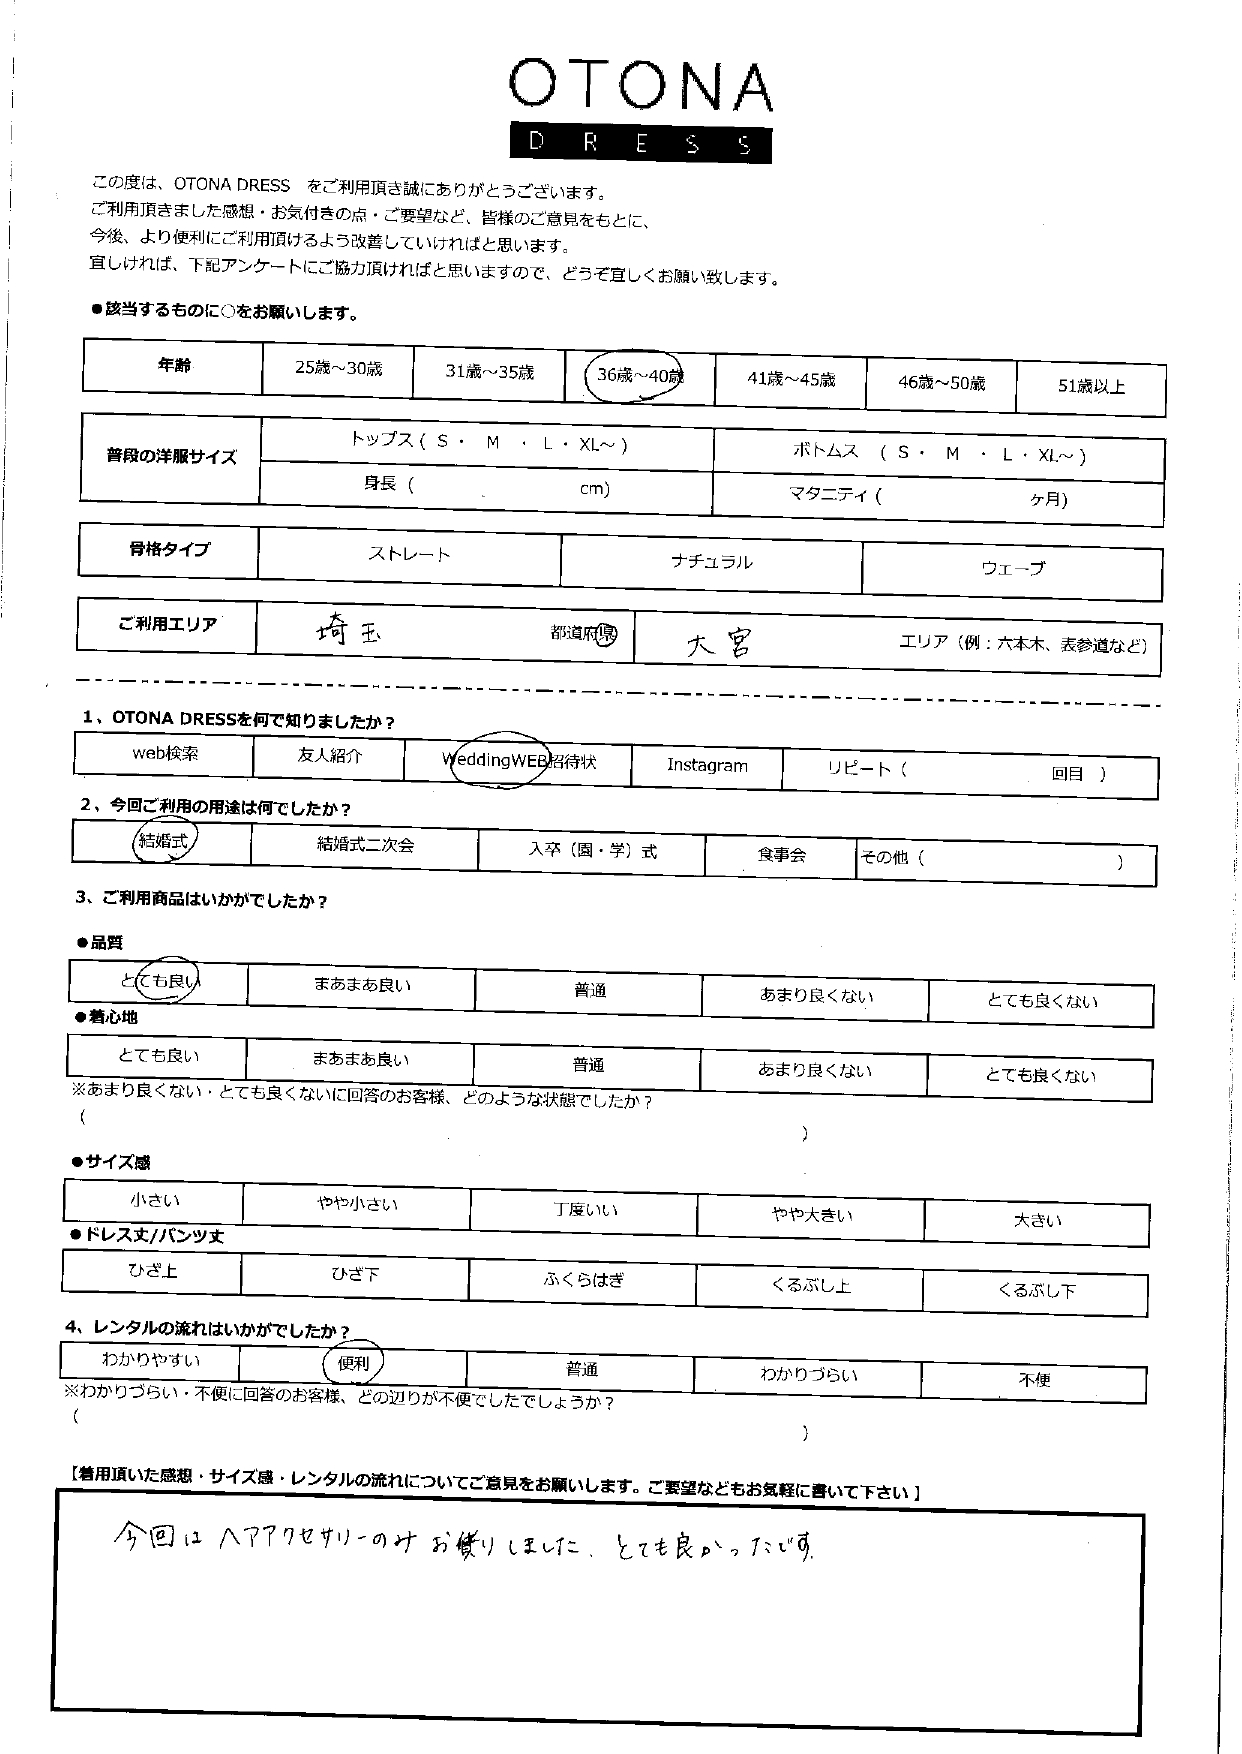 OTONA
DRESS
この度は、OTONA DRESS をご利用頂き誠にありがとうございます。
ご利用頂きました感想・お気付きの点・ご要望など、皆様のご意見をもとに、
今後、より便利にご利用頂けるよう改善していければと思います。
宜しければ、下記アンケートにご協力頂ければと思いますので、どうぞ宜しくお願い致します。
●該当するものに○をお願いします。
年齢 25歳～30歳 31歳～35歳 36歳～40歳 41歳～45歳 46歳～50歳 51歳以上
普段の洋服サイズ トップス ( S ・ M ・ L ・ XL～ ) ボトムス ( S ・ M ・ L ・ XL～ )
身長 ( cm) マタニティ ( ヶ月)
骨格タイプ ストレート ナチュラル ウェーブ
ご利用エリア 埼玉 都道府県 大宮 エリア（例：六本木、表参道など）
1、OTONA DRESSを何で知りましたか？
web検索 友人紹介 WeddingWEB招待状 Instagram リピート ( 回目 )
2、今回ご利用の用途は何でしたか？
結婚式 結婚式二次会 入卒（園・学）式 食事会 その他 ( )
3、ご利用商品はいかがでしたか？
●品質
とても良い まあまあ良い 普通 あまり良くない とても良くない
●着心地
とても良い まあまあ良い 普通 あまり良くない とても良くない
※あまり良くない・とても良くないに回答のお客様、どのような状態でしたか？
( )
●サイズ感
小さい やや小さい 丁度いい やや大きい 大きい
●ドレス丈/パンツ丈
ひざ上 ひざ下 ふくらはぎ くるぶし上 くるぶし下
4、レンタルの流れはいかがでしたか？
わかりやすい 便利 普通 わかりづらい 不便
※わかりづらい・不便に回答のお客様、どの辺りが不便でしたでしょうか？
( )
【着用頂いた感想・サイズ感・レンタルの流れについてご意見をお願いします。ご要望などもお気軽に書いて下さい】
今回は ヘアアクセサリーのみ お借りしました、とても良かったです。